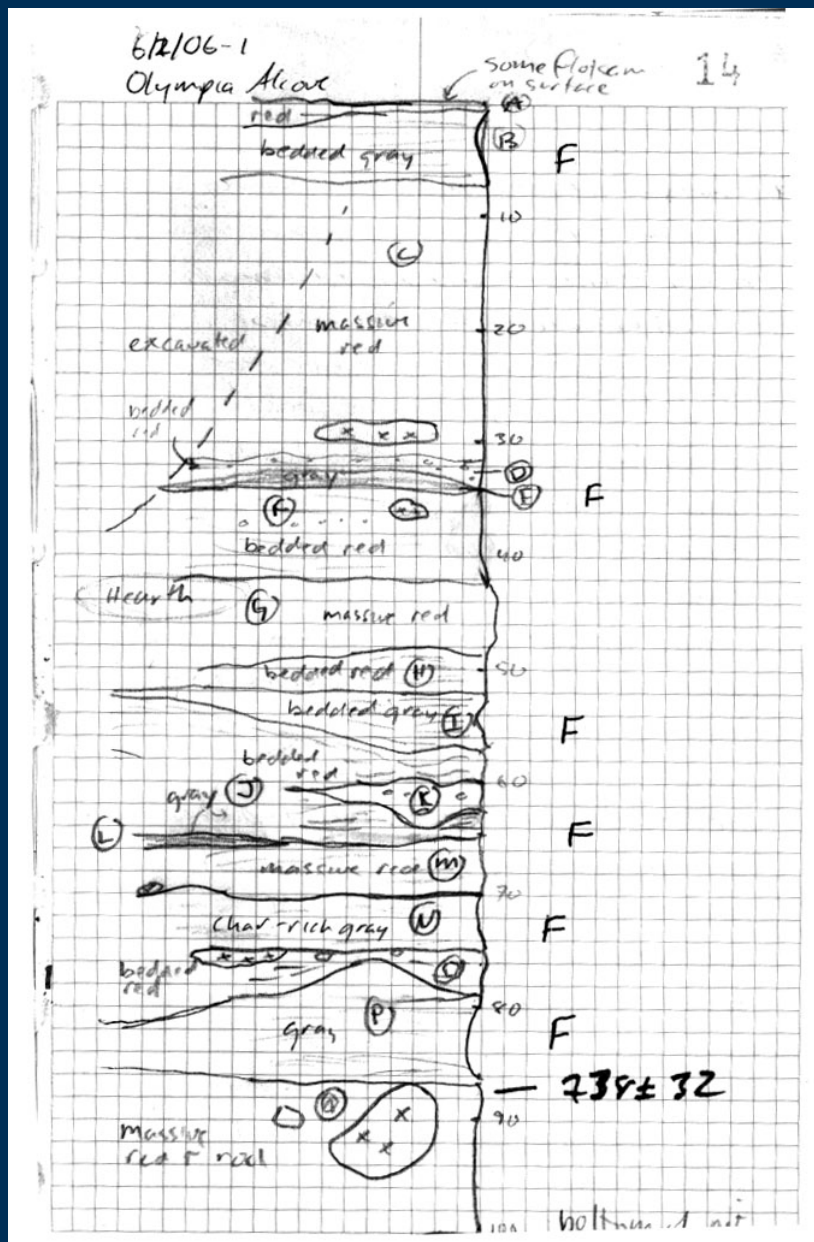 6/2/06-1
Olympia Alcove
some flotsam
on surface
14
A
red
B
bedded gray
F
10
C
massive
red
20
excavated
bedded
red
30
gray
D
E
F
F
bedded red
40
Hearth
G
massive red
50
bedded red H
bedded gray I
F
bedded
red
60
J
gray
K
L
F
massive red M
70
Char-rich gray N
F
bedded
red
O
80
P
gray
F
738± 32
Q
90
massive
red +
100